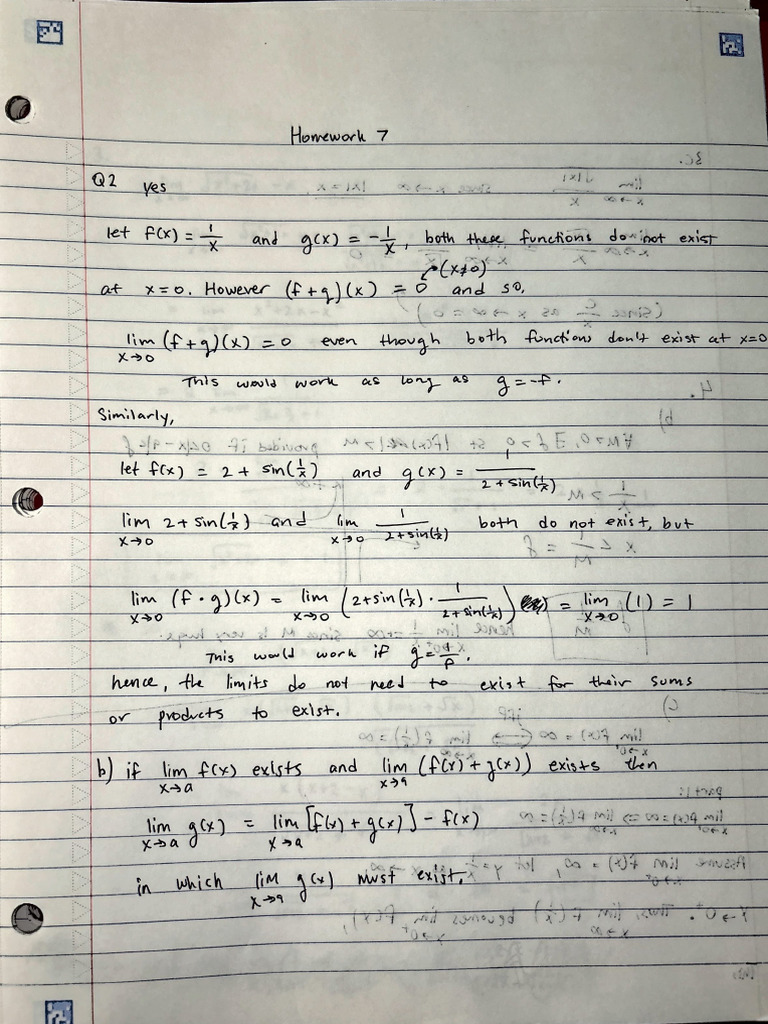 Homework 7
Q2 yes
let f(x) = 1/x and g(x) = -1/x, both these functions do not exist
(x≠0)
at x=0. However (f+g)(x) = 0 and so,
lim x→0 (f+g)(x) = 0 even though both functions don't exist at x=0
This would work as long as g=-f.
Similarly,
let f(x) = 2 + sin(1/x) and g(x) = 1/(2+sin(1/x))
lim x→0 2+sin(1/x) and lim x→0 1/(2+sin(1/x)) both do not exist, but
lim x→0 (f·g)(x) = lim x→0 (2+sin(1/x) · 1/(2+sin(1/x))) = lim x→0 (1) = 1
This would work if g=1/f.
hence, the limits do not need to exist for their sums
or products to exist.
b) if lim x→a f(x) exists and lim x→a (f(x)+g(x)) exists then
lim x→a g(x) = lim x→a [f(x)+g(x)] - f(x)
in which lim x→a g(x) must exist.